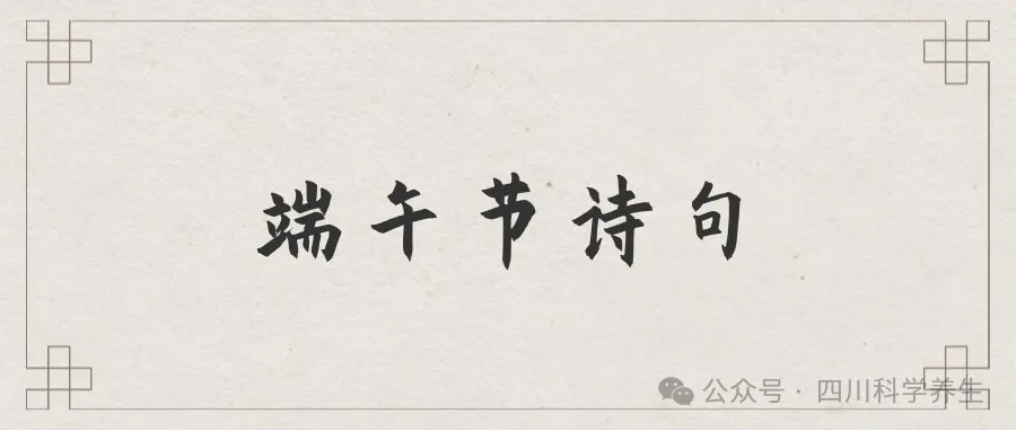 端午节诗句
公众号·四川科学养生